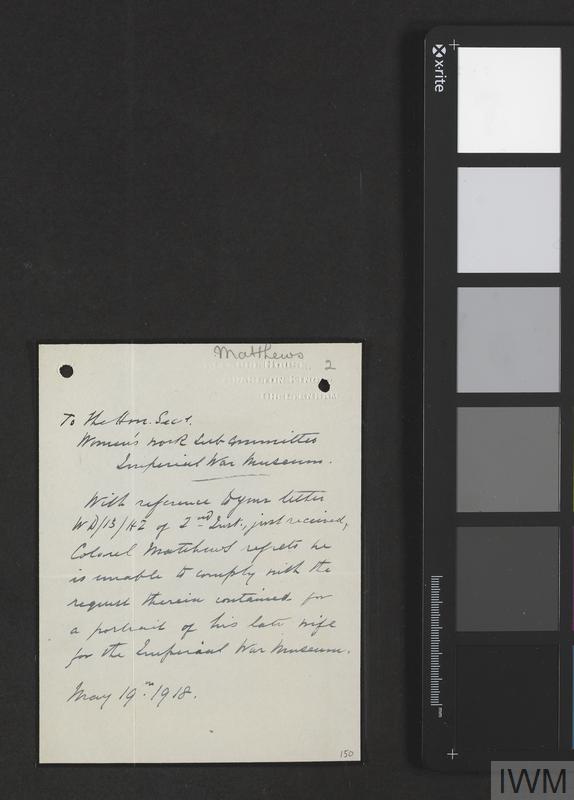 x·rite
Matthews
2
House
Charlton Kings
Cheltenham
To The Hon. Sect.
Women's Work Sub Committee
Imperial War Museum.
With reference to your letter
of 2nd Inst., just received,
Colonel Matthews regrets he
is unable to comply with the
request therein contained for
a portrait of his late wife
for the Imperial War Museum.
May 19th 1918.
150
mm
IWM